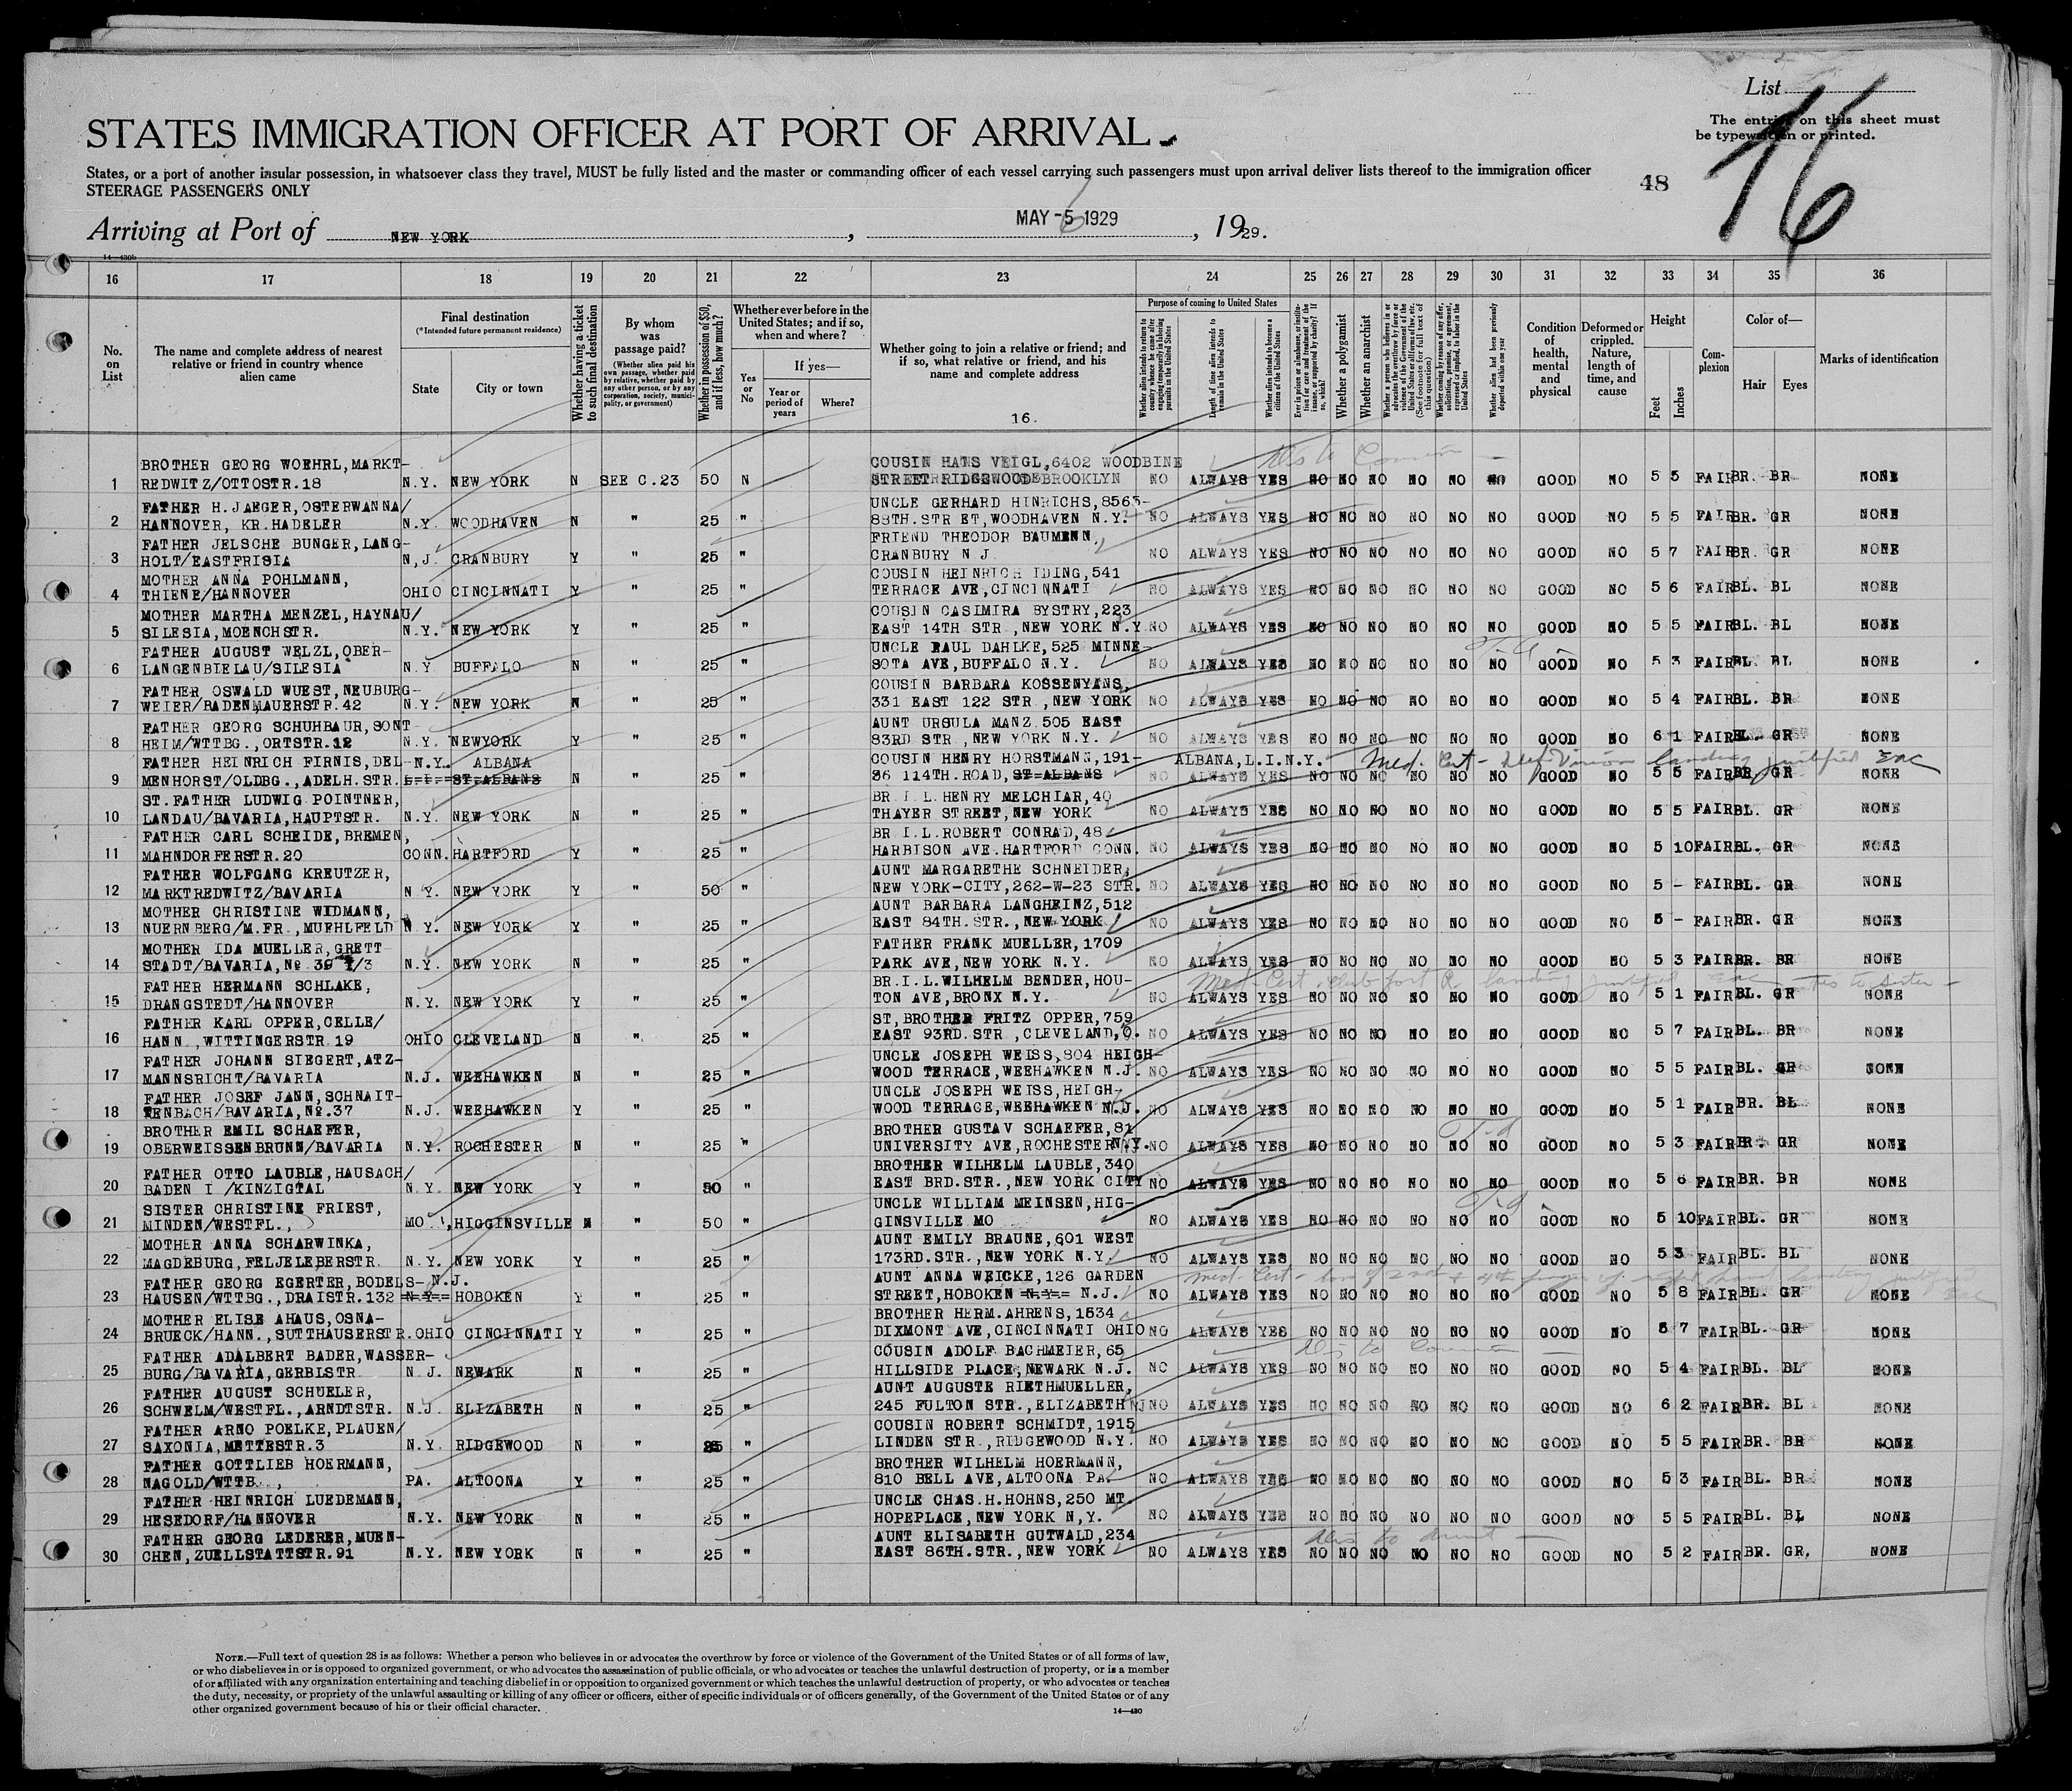 List
16
The entries on this sheet must
be typewritten or printed.
STATES IMMIGRATION OFFICER AT PORT OF ARRIVAL
States, or a port of another insular possession, in whatsoever class they travel, MUST be fully listed and the master or commanding officer of each vessel carrying such passengers must upon arrival deliver lists thereof to the immigration officer
STEERAGE PASSENGERS ONLY
48
Arriving at Port of NEW YORK, MAY -5 1929, 1929.
14—430b
16 17 18 19 20 21 22 23 24 25 26 27 28 29 30 31 32 33 34 35 36
No. on List
The name and complete address of nearest relative or friend in country whence alien came
Final destination
(*Intended future permanent residence)
State
City or town
Whether having a ticket to such final destination
By whom was passage paid?
(Whether alien paid his own passage, whether paid by relative, whether paid by any other person, or by any corporation, society, municipality, or government)
Whether in possession of $50, and if less, how much?
Whether ever before in the United States; and if so, when and where?
Yes or No
If yes—
Year or period of years
Where?
Whether going to join a relative or friend; and if so, what relative or friend, and his name and complete address
16.
Purpose of coming to United States
Whether alien intends to return to country whence he came after engaging temporarily in laboring pursuits in the United States
Length of time alien intends to remain in the United States
Whether alien intends to become a citizen of the United States
Ever in prison or almshouse, or institution for care and treatment of the insane, or supported by charity? If so, which?
Whether a polygamist
Whether an anarchist
Whether a person who believes in or advocates the overthrow by force or violence of the Government of the United States or all forms of law, etc. (See footnote for full text of this question)
Whether coming by reason of any offer, solicitation, promise, or agreement, expressed or implied, to labor in the United States
Whether alien had been previously deported within one year
Condition of health, mental and physical
Deformed or crippled. Nature, length of time, and cause
Height
Feet
Inches
Complexion
Color of—
Hair
Eyes
Marks of identification
BROTHER GEORG WOEHRL, MARKT- COUSIN HANS VEIGL, 6402 WOODBINE
1 REDWITZ/OTTOSTR.18 N.Y. NEW YORK N SEE C.23 50 N STREET RIDGEWOOD BROOKLYN NO ALWAYS YES NO NO NO NO NO NO GOOD NO 5 5 FAIR BR. BR NONE
FATHER H. JAEGER, OSTERWANNA/ UNCLE GERHARD HINRICHS, 8563-
2 HANNOVER, KR.HADELER N.Y. WOODHAVEN N " 25 " 88TH. STR ET, WOODHAVEN N.Y. NO ALWAYS YES NO NO NO NO NO NO GOOD NO 5 5 FAIR BR. GR NONE
FATHER JELSCHE BUNGER, LANG- FRIEND THEODOR BAUMENN
3 HOLT/EASTFRISIA N,J. CRANBURY Y " 25 " CRANBURY N J. NO ALWAYS YES NO NO NO NO NO NO GOOD NO 5 7 FAIR BR. GR NONE
MOTHER ANNA POHLMANN, COUSIN HEINRICH IDING, 541
4 THIENE/HANNOVER OHIO CINCINNATI Y " 25 " TERRACE AVE, CINCINNATI NO ALWAYS YES NO NO NO NO NO NO GOOD NO 5 6 FAIR BL. BL NONE
MOTHER MARTHA MENZEL, HAYNAU/ COUSIN CASIMIRA BYSTRY, 223
5 SILESIA, MOENCHSTR. N.Y. NEW YORK Y " 25 " EAST 14TH STR , NEW YORK N.Y NO ALWAYS YES NO NO NO NO NO NO GOOD NO 5 5 FAIR BL. BL NONE
FATHER AUGUST WELZL, OBER- UNCLE PAUL DAHLKE, 525 MINNE-
6 LANGENBIELAU/SILESIA N.Y BUFFALO N " 25 " SOTA AVE, BUFFALO N.Y. NO ALWAYS YES NO NO NO NO NO NO GOOD NO 5 3 FAIR BL. BL NONE
FATHER OSWALD WUEST, NEUBURG- COUSIN BARBARA KOSSENYANS,
7 WEIER/BADEN MAUERSTR.42 N.Y. NEW YORK N " 25 " 331 EAST 122 STR , NEW YORK NO ALWAYS YES NO NO NO NO NO NO GOOD NO 5 4 FAIR BL. BR NONE
FATHER GEORG SCHUHBAUR, SONT- AUNT URSULA MANZ 505 EAST
8 HEIM/WTTBG., ORTSTR.12 N.Y. NEWYORK Y " 25 " 83RD STR , NEW YORK N.Y. NO ALWAYS YES NO NO NO NO NO NO GOOD NO 6 1 FAIR BL. GR NONE
FATHER HEINRICH FIRNIS, DEL- N.Y. ALBANA COUSIN HENRY HORSTMANN, 191- ALBANA, L.I.N.Y. Med. Cert - Def Vision landing justified
9 MENHORST/OLDBG., ADELH.STR. ST ALBANS N " 25 " 36 114TH. ROAD, ST ALBANS NO ALWAYS YES NO NO NO NO NO NO GOOD NO 5 5 FAIR BR GR NONE
ST. FATHER LUDWIG POINTNER, BR I.L. HENRY MELCHIAR, 40
10 LANDAU/BAVARIA, HAUPTSTR. N.Y. NEW YORK N " 25 " THAYER STREET, NEW YORK NO ALWAYS YES NO NO NO NO NO NO GOOD NO 5 5 FAIR BL. GR NONE
FATHER CARL SCHEIDE, BREMEN, BR I.L. ROBERT CONRAD, 48
11 MAHNDORFERSTR.20 CONN. HARTFORD Y " 25 " HARBISON AVE. HARTFORD CONN. NO ALWAYS YES NO NO NO NO NO NO GOOD NO 5 10 FAIR BL. GR NONE
FATHER WOLFGANG KREUTZER, AUNT MARGARETHE SCHNEIDER,
12 MARKTREDWITZ/BAVARIA N Y. NEW YORK Y " 50 " NEW YORK-CITY, 262-W-23 STR. NO ALWAYS YES NO NO NO NO NO NO GOOD NO 5 - FAIR BL. GR NONE
MOTHER CHRISTINE WIDMANN, AUNT BARBARA LANGHEINZ, 512
13 NUERNBERG/M.FR., MUEHLFELD N Y. NEW YORK Y " 25 " EAST 84TH. STR., NEW YORK NO ALWAYS YES NO NO NO NO NO NO GOOD NO 5 - FAIR BR. GR NONE
MOTHER IDA MUELLER, GRETT FATHER FRANK MUELLER, 1709
14 STADT/BAVARIA, No 39 1/3 N.Y. NEW YORK N " 25 " PARK AVE, NEW YORK N.Y. NO ALWAYS YES NO NO NO NO NO NO GOOD NO 5 3 FAIR BR. BR NONE
FATHER HERMANN SCHLAKE, BR.I.L. WILHELM BENDER, HOU- Med. Cert. club foot R. landing justified to sister -
15 DRANGSTEDT/HANNOVER N.Y. NEW YORK Y " 25 " TON AVE, BRONX N.Y. NO ALWAYS YES NO NO NO NO NO NO GOOD NO 5 1 FAIR BL. GR NONE
FATHER KARL OPPER, CELLE/ ST, BROTHER FRITZ OPPER, 759
16 HANN , WITTINGERSTR 19 OHIO CLEVELAND N " 25 " EAST 93RD. STR , CLEVELAND, O. NO ALWAYS YES NO NO NO NO NO NO GOOD NO 5 7 FAIR BL. BR NONE
FATHER JOHANN SIEGERT, ATZ- UNCLE JOSEPH WEISS, 804 HEIGH-
17 MANNSRICHT/BAVARIA N.J. WEEHAWKEN N " 25 " WOOD TERRACE, WEEHAWKEN N.J. NO ALWAYS YES NO NO NO NO NO NO GOOD NO 5 5 FAIR BL. GR NONE
FATHER JOSEF JANN, SCHNAIT- UNCLE JOSEPH WEISS, HEIGH-
18 TENBACH/BAVARIA, No.37 N.J. WEEHAWKEN Y " 25 " WOOD TERRACE, WEEHAWKEN N.J. NO ALWAYS YES NO NO NO NO NO NO GOOD NO 5 1 FAIR BR. BL NONE
BROTHER EMIL SCHAEFER, BROTHER GUSTAV SCHAEFER, 81
19 OBERWEISSENBRUNN/BAVARIA N.Y. ROCHESTER N " 25 " UNIVERSITY AVE, ROCHESTER N.Y. NO ALWAYS YES NO NO NO NO NO NO GOOD NO 5 3 FAIR BR. GR NONE
FATHER OTTO LAUBLE, HAUSACH/ BROTHER WILHELM LAUBLE, 340
20 BADEN I /KINZIGTAL N.Y. NEW YORK Y " 50 " EAST BRD. STR., NEW YORK CITY NO ALWAYS YES NO NO NO NO NO NO GOOD NO 5 6 FAIR BR. BR NONE
SISTER CHRISTINE FRIEST, UNCLE WILLIAM MEINSEN, HIG-
21 MINDEN/WESTFL., MO , HIGGINSVILLE N " 50 " GINSVILLE MO NO ALWAYS YES NO NO NO NO NO NO GOOD NO 5 10 FAIR BL. GR NONE
MOTHER ANNA SCHARWINKA, AUNT EMILY BRAUNE, 601 WEST
22 MAGDEBURG, FELJELEBERSTR. N.Y. NEW YORK Y " 25 " 173RD. STR., NEW YORK N.Y. NO ALWAYS YES NO NO NO NO NO NO GOOD NO 5 3 FAIR BL. BL NONE
FATHER GEORG EGERTER, BODELS- N.J. AUNT ANNA WEICKE, 126 GARDEN Med. Cert - loss of 2nd & 4th finger of right hand landing justified
23 HAUSEN/WTTBG., DRAISTR.132 N.Y. HOBOKEN Y " 25 " STREET, HOBOKEN N.Y. N.J. NO ALWAYS YES NO NO NO NO NO NO GOOD NO 5 8 FAIR BL. GR NONE
MOTHER ELISE AHAUS, OSNA- BROTHER HERM. AHRENS, 1534
24 BRUECK/HANN., SUTTHAUSERSTR. OHIO CINCINNATI Y " 25 " DIXMONT AVE, CINCINNATI OHIO NO ALWAYS YES NO NO NO NO NO NO GOOD NO 5 7 FAIR BL. GR NONE
FATHER ADALBERT BADER, WASSER- COUSIN ADOLF BACHMEIER, 65
25 BURG/BAVARIA, GERBLSTR N J. NEWARK N " 25 " HILLSIDE PLACE, NEWARK N.J. NO ALWAYS YES NO NO NO NO NO NO GOOD NO 5 4 FAIR BL. BL NONE
FATHER AUGUST SCHUELER, AUNT AUGUSTE RIETHMUELLER,
26 SCHWELM/WESTFL., ARNDTSTR. N.J ELIZABETH N " 25 " 245 FULTON STR., ELIZABETH NJ NO ALWAYS YES NO NO NO NO NO NO GOOD NO 6 2 FAIR BR. BL NONE
FATHER ARNO POELKE, PLAUEN/ COUSIN ROBERT SCHMIDT, 1915
27 SAXONIA, METTESTR.3 N.Y. RIDGEWOOD N " 25 " LINDEN STR , RIDGEWOOD N.Y. NO ALWAYS YES NO NO NO NO NO NO GOOD NO 5 5 FAIR BR. BR NONE
FATHER GOTTLIEB HOERMANN, BROTHER WILHELM HOERMANN,
28 NAGOLD/WTTB. , PA. ALTOONA Y " 25 " 810 BELL AVE, ALTOONA PA. NO ALWAYS YES NO NO NO NO NO NO GOOD NO 5 3 FAIR BL. BR NONE
FATHER HEINRICH LUEDEMANN, UNCLE CHAS. H. HOHNS, 250 MT.
29 HESEDORF/HANNOVER N.Y. NEW YORK N " 25 " HOPEPLACE, NEW YORK N,Y. NO ALWAYS YES NO NO NO NO NO NO GOOD NO 5 5 FAIR BL. BL NONE
FATHER GEORG LEDERER, MUEN- AUNT ELISABETH GUTWALD, 234
30 CHEN, ZUELLSTATTSTR.91 N.Y. NEW YORK N " 25 " EAST 86TH. STR., NEW YORK NO ALWAYS YES NO NO NO NO NO NO GOOD NO 5 2 FAIR BR. GR, NONE
NOTE.—Full text of question 28 is as follows: Whether a person who believes in or advocates the overthrow by force or violence of the Government of the United States or of all forms of law,
or who disbelieves in or is opposed to organized government, or who advocates the assassination of public officials, or who advocates or teaches the unlawful destruction of property, or is a member
of or affiliated with any organization entertaining and teaching disbelief in or opposition to organized government or which teaches the unlawful destruction of property, or who advocates or teaches
the duty, necessity, or propriety of the unlawful assaulting or killing of any officer or officers, either of specific individuals or of officers generally, of the Government of the United States or of any
other organized government because of his or their official character.
14—430